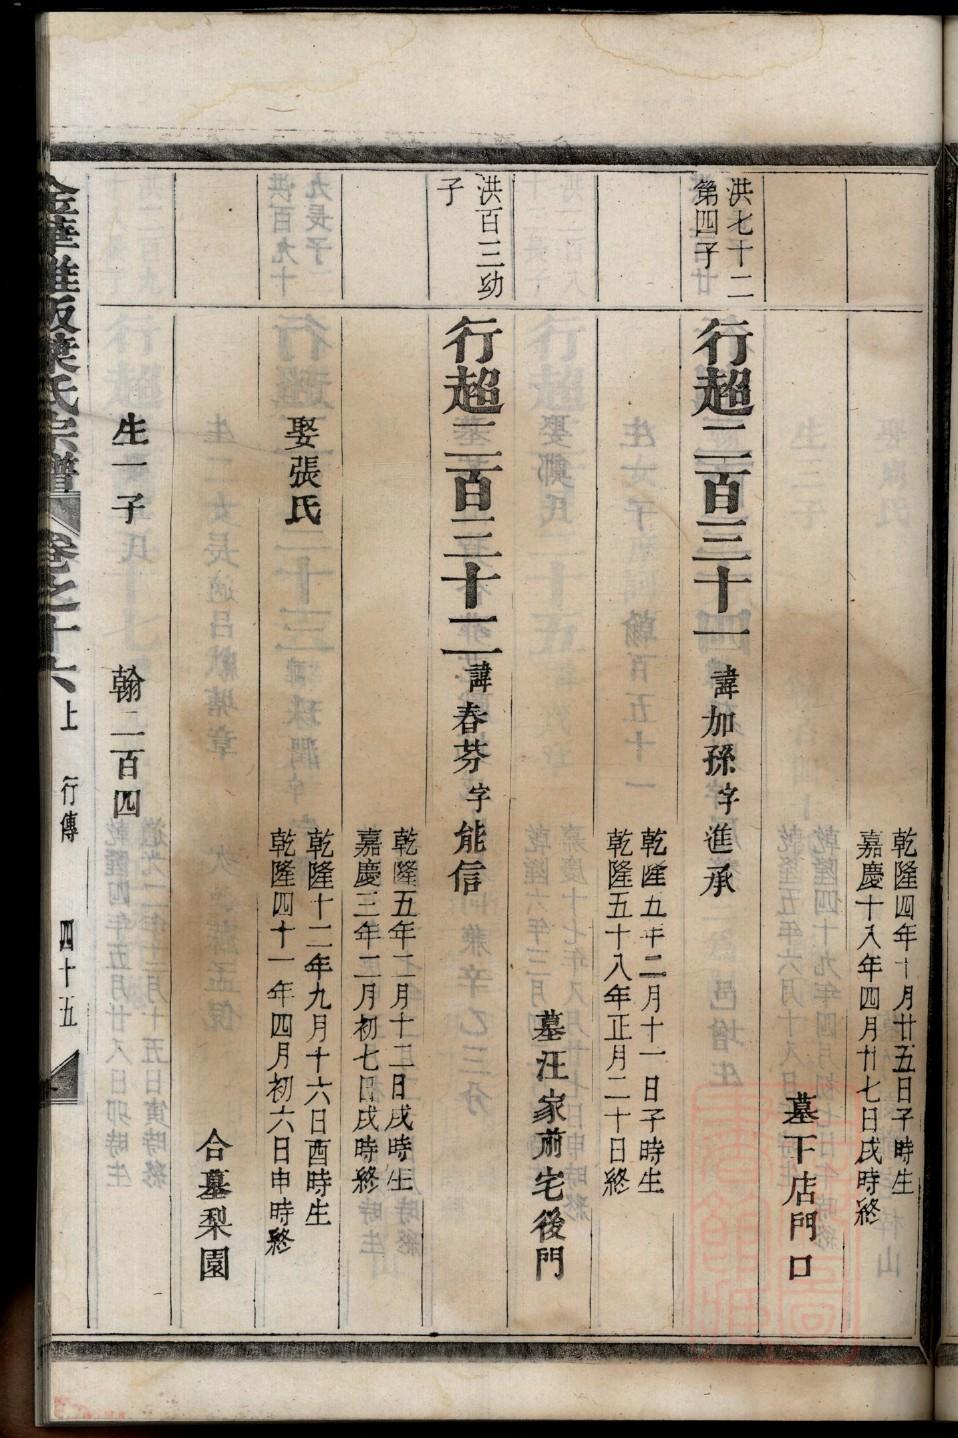 乾隆四年十月廿五日子時生
嘉慶十八年四月廿七日戌時終
墓下店門口
洪七十二
第四子
行超二百三十一
諱加孫字進承
乾隆五年二月十一日子時生
乾隆五十八年正月二十日終
墓汪家前宅後門
洪百三幼
子
行超二百三十二
諱春芬字能信
乾隆五年二月十三日戌時生
嘉慶三年二月初七日戌時終
娶張氏
乾隆十二年九月十六日酉時生
乾隆四十一年四月初六日申時終
合墓梨園
生一子
翰二百四
葉氏宗譜
卷之十六上
行傳
四十五